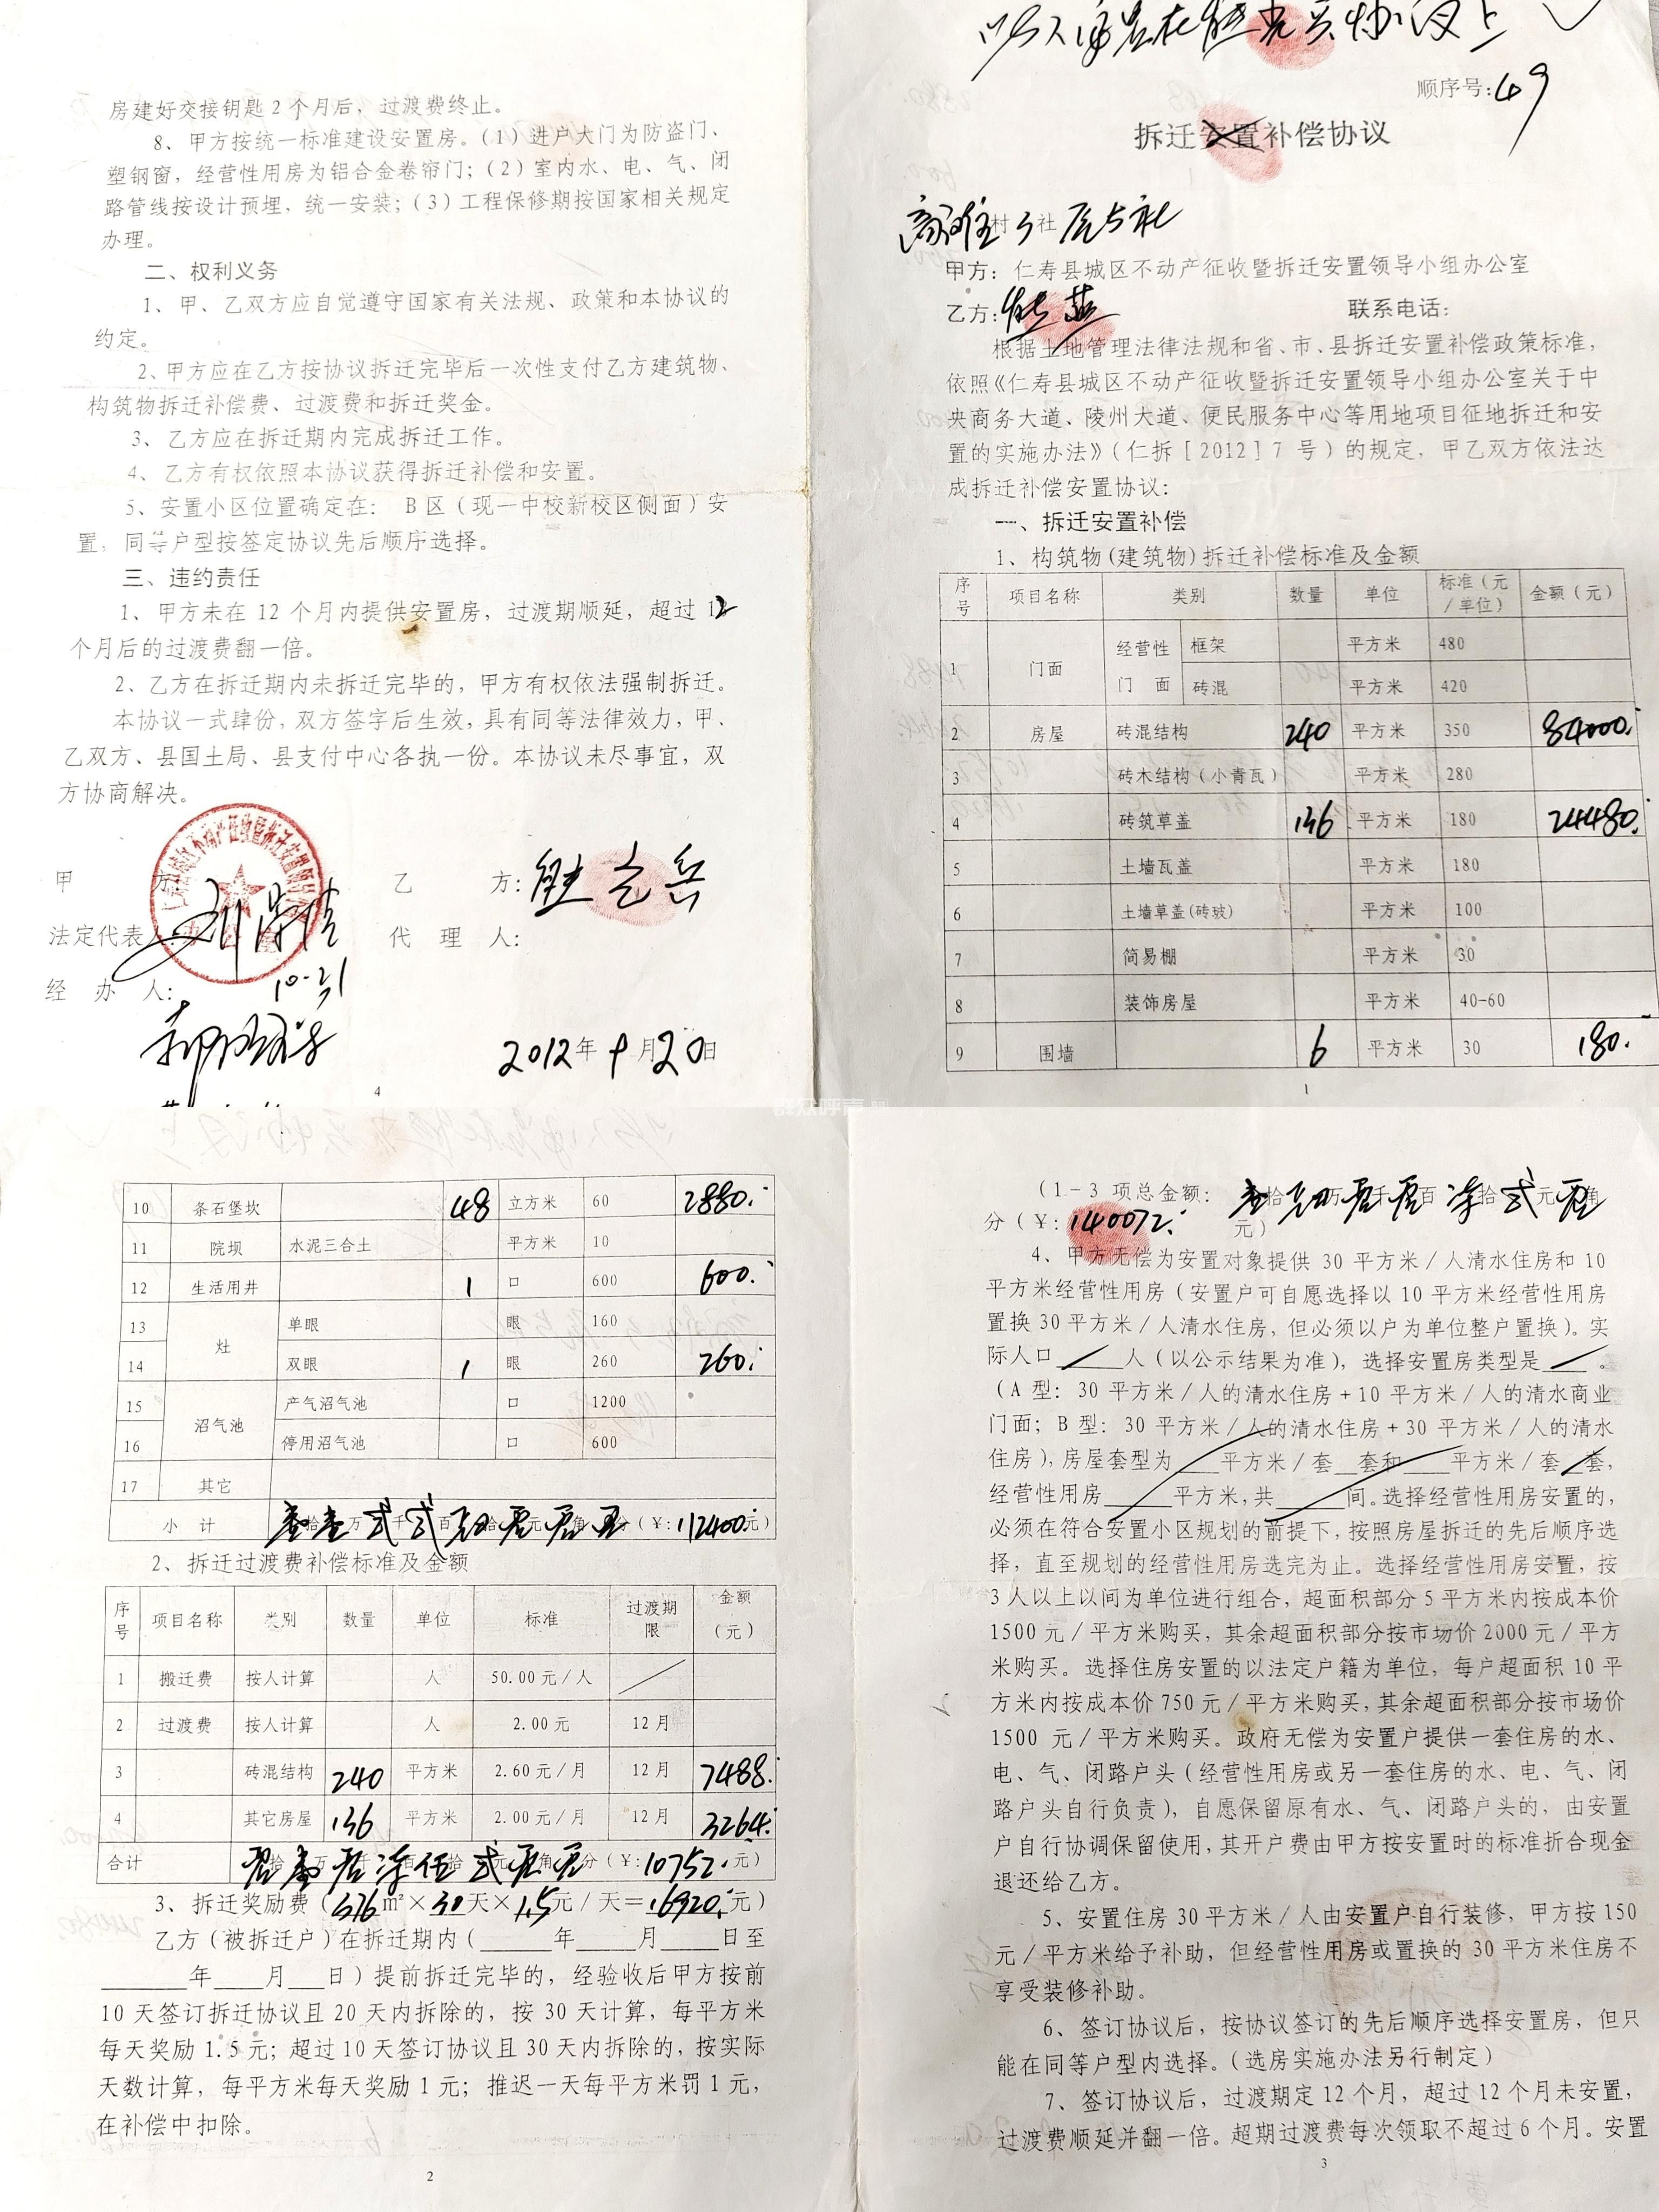 房建好交接钥匙2个月后，过渡费终止。
8、甲方按统一标准建设安置房。(1)进户大门为防盗门、
塑钢窗，经营性用房为铝合金卷帘门；(2)室内水、电、气、闭
路管线按设计预埋，统一安装；(3)工程保修期按国家相关规定
办理。
二、权利义务
1、甲、乙双方应自觉遵守国家有关法规、政策和本协议的
约定。
2、甲方应在乙方按协议拆迁完毕后一次性支付乙方建筑物、
构筑物拆迁补偿费、过渡费和拆迁奖金。
3、乙方应在拆迁期内完成拆迁工作。
4、乙方有权依照本协议获得拆迁补偿和安置。
5、安置小区位置确定在： B区（现一中校新校区侧面）安
置，同等户型按签定协议先后顺序选择。
三、违约责任
1、甲方未在12个月内提供安置房，过渡期顺延，超过12
个月后的过渡费翻一倍。
2、乙方在拆迁期内未拆迁完毕的，甲方有权依法强制拆迁。
本协议一式肆份，双方签字后生效，具有同等法律效力，甲、
乙双方、县国土局、县支付中心各执一份。本协议未尽事宜，双
方协商解决。
甲 方： 乙 方：熊克兵
法定代表人： 代 理 人：
经 办 人： 10-31
2012年十月20日
4
以人 在熊克兵协议上
顺序号：49
拆迁安置补偿协议
村 社
甲方：仁寿县城区不动产征收暨拆迁安置领导小组办公室
乙方：熊 联系电话：
根据土地管理法律法规和省、市、县拆迁安置补偿政策标准，
依照《仁寿县城区不动产征收暨拆迁安置领导小组办公室关于中
央商务大道、陵州大道、便民服务中心等用地项目征地拆迁和安
置的实施办法》（仁拆[2012]7号）的规定，甲乙双方依法达
成拆迁补偿安置协议：
一、拆迁安置补偿
1、构筑物(建筑物)拆迁补偿标准及金额
序号 项目名称 类别 数量 单位 标准（元/单位） 金额（元）
1 门面 经营性门面 框架 平方米 480
砖混 平方米 420
2 房屋 砖混结构 240 平方米 350 84000.
3 砖木结构（小青瓦） 平方米 280
4 砖筑草盖 136 平方米 180 24480.
5 土墙瓦盖 平方米 180
6 土墙草盖(砖玻) 平方米 100
7 简易棚 平方米 30
8 装饰房屋 平方米 40-60
9 围墙 6 平方米 30 180.
1
10 条石堡坎 48 立方米 60 2880.
11 院坝 水泥三合土 平方米 10
12 生活用井 1 口 600 600.
13 灶 单眼 眼 160
14 双眼 1 眼 260 260.
15 沼气池 产气沼气池 口 1200
16 停用沼气池 口 600
17 其它
小 计 （¥：112400.元）
2、拆迁过渡费补偿标准及金额
序号 项目名称 类别 数量 单位 标准 过渡期限 金额（元）
1 搬迁费 按人计算 人 50.00元/人
2 过渡费 按人计算 人 2.00元 12月
3 砖混结构 240 平方米 2.60元/月 12月 7488.
4 其它房屋 136 平方米 2.00元/月 12月 3264.
合计 （¥：10752.元）
3、拆迁奖励费（376m²×30天×1.5元/天=16920.元）
乙方（被拆迁户）在拆迁期内（____年____月____日至
____年____月____日）提前拆迁完毕的，经验收后甲方按前
10天签订拆迁协议且20天内拆除的，按30天计算，每平方米
每天奖励1.5元；超过10天签订协议且30天内拆除的，按实际
天数计算，每平方米每天奖励1元；推迟一天每平方米罚1元，
在补偿中扣除。
2
（1-3项总金额：
分（¥：140072.元）
4、甲方无偿为安置对象提供30平方米/人清水住房和10
平方米经营性用房（安置户可自愿选择以10平方米经营性用房
置换30平方米/人清水住房，但必须以户为单位整户置换）。实
际人口____人（以公示结果为准），选择安置房类型是____。
（A型：30平方米/人的清水住房+10平方米/人的清水商业
门面；B型：30平方米/人的清水住房+30平方米/人的清水
住房），房屋套型为____平方米/套__套和____平方米/套__套，
经营性用房____平方米，共____间。选择经营性用房安置的，
必须在符合安置小区规划的前提下，按照房屋拆迁的先后顺序选
择，直至规划的经营性用房选完为止。选择经营性用房安置，按
3人以上以间为单位进行组合，超面积部分5平方米内按成本价
1500元/平方米购买，其余超面积部分按市场价2000元/平方
米购买。选择住房安置的以法定户籍为单位，每户超面积10平
方米内按成本价750元/平方米购买，其余超面积部分按市场价
1500 元/平方米购买。政府无偿为安置户提供一套住房的水、
电、气、闭路户头（经营性用房或另一套住房的水、电、气、闭
路户头自行负责），自愿保留原有水、气、闭路户头的，由安置
户自行协调保留使用，其开户费由甲方按安置时的标准折合现金
退还给乙方。
5、安置住房30平方米/人由安置户自行装修，甲方按150
元/平方米给予补助，但经营性用房或置换的30平方米住房不
享受装修补助。
6、签订协议后，按协议签订的先后顺序选择安置房，但只
能在同等户型内选择。（选房实施办法另行制定）
7、签订协议后，过渡期定12个月，超过12个月未安置，
过渡费顺延并翻一倍。超期过渡费每次领取不超过6个月。安置
3